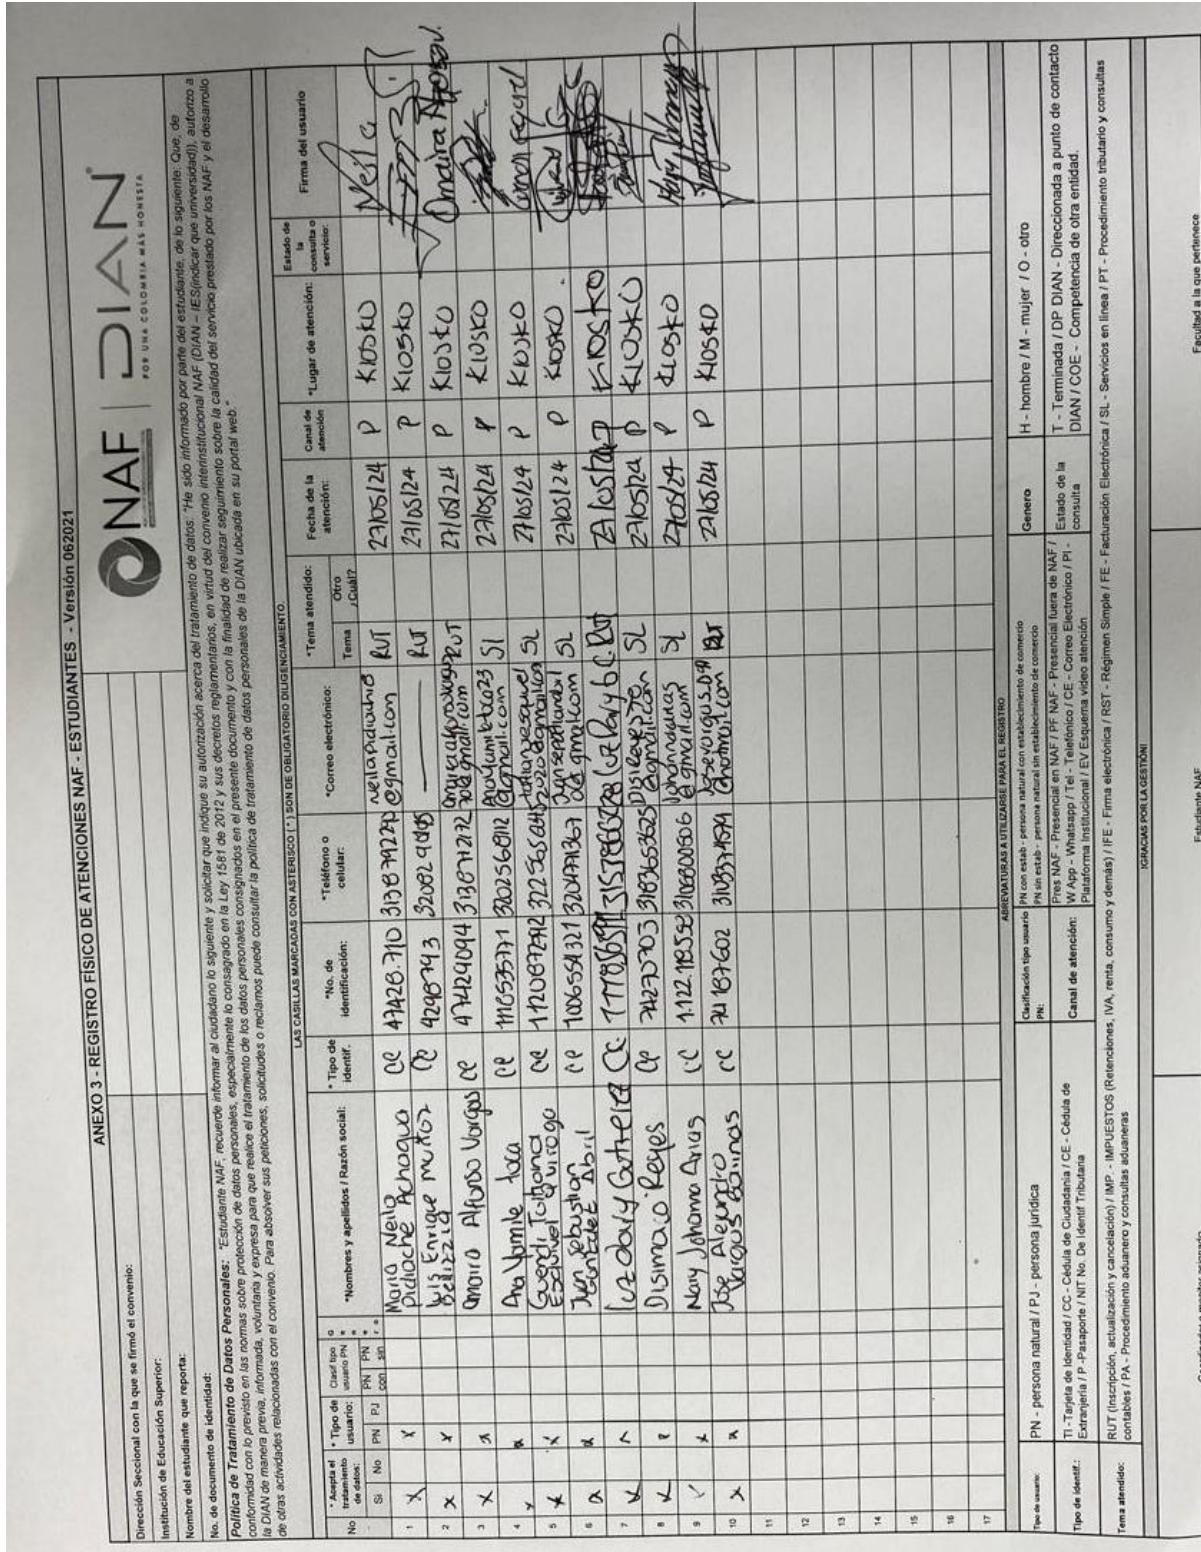 ANEXO 3 - REGISTRO FÍSICO DE ATENCIONES NAF - ESTUDIANTES - Versión 062021
Dirección Seccional con la que se firmó el convenio:
Institución de Educación Superior:
Nombre del estudiante que reporta:
No. de documento de identidad:
NAF | DIAN
POR UNA COLOMBIA MÁS HONESTA
Política de Tratamiento de Datos Personales: "Estudiante NAF, recuerde informar al ciudadano lo siguiente y solicitar que indique su autorización acerca del tratamiento de datos: "He sido informado por parte del estudiante, de lo siguiente: Que, de
conformidad con lo previsto en las normas sobre protección de datos personales, especialmente lo consagrado en la Ley 1581 de 2012 y sus decretos reglamentarios, en virtud del convenio interinstitucional NAF (DIAN – IES(indicar que universidad)), autorizo a
la DIAN de manera previa, informada, voluntaria y expresa para que realice el tratamiento de los datos personales consignados en el presente documento y con la finalidad de realizar seguimiento sobre la calidad del servicio prestado por los NAF y el desarrollo
de otras actividades relacionadas con el convenio. Para absolver sus peticiones, solicitudes o reclamos puede consultar la política de tratamiento de datos personales de la DIAN ubicada en su portal web."
LAS CASILLAS MARCADAS CON ASTERISCO ( * ) SON DE OBLIGATORIO DILIGENCIAMIENTO.
No * Acepta el tratamiento de datos: * Tipo de usuario: Clasif tipo usuario PN *Nombres y apellidos / Razón social: * Tipo de identif. *No. de identificación: *Teléfono o celular: *Correo electrónico: *Tema atendido: Fecha de la atención: Canal de atención: *Lugar de atención: Estado de la consulta o servicio: Firma del usuario
Si No PN PJ PN con PN sin Tema Otro ¿Cuál?
1 X X Maria Neila Pidiache Achagua CC 47428.710 3138792290 neilapidiache@gmail.com RUT 27/05/24 P KIOSKO Neila
2 x x Luis Enrique muñoz CC 4298793 RUT 27/05/24 P KIOSKO
3 X x Omaira Alfonso Vargas CC 47429094 3138772172 RUT 27/05/24 P KIOSKO Omaira
4 x x Ana Yamile CC 1118535771 3202568112 @gmail.com SL 27/05/24 P KIOSKO
5 x x Tatiana Esquivel Quiroga CC SL 27/05/24 P KIOSKO
6 x x Juan Sebastian Abril CC 1006554321 3204771367 SL 27/05/24 P KIOSKO
7 x CC RUT 27/05/24 P KIOSKO
8 x Disimaco Reyes CC 74270703 3183653625 @gmail.com SL 27/05/24 P KLOSKO
9 x Nary Johanna Arias CC 1.122.118.592 3108800506 @gmail.com SL 27/05/24 P KLOSKO
10 x x Jose Alejandro Vargas Salinas CC 74187602 @hotmail.com RUT 27/05/24 P KIOSKO
11
12
13
14
15
16
17
ABREVIATURAS A UTILIZARSE PARA EL REGISTRO
Tipo de usuario: PN - persona natural / PJ - persona jurídica
Clasificación tipo usuario PN: PN con estab - persona natural con establecimiento de comercio
PN sin estab - persona natural sin establecimiento de comercio
Genero H - hombre / M - mujer / O - otro
Tipo de identif.: TI - Tarjeta de Identidad / CC - Cédula de Ciudadanía / CE - Cédula de
Extranjería / P -Pasaporte / NIT No. De Identif Tributaria
Canal de atención: Pres NAF - Presencial en NAF / PF NAF - Presencial fuera de NAF /
W App - Whatsapp / Tel - Telefónico / CE - Correo Electrónico / PI -
Plataforma Institucional / EV Esquema video atención
Estado de la consulta T - Terminada / DP DIAN - Direccionada a punto de contacto
DIAN / COE - Competencia de otra entidad.
Tema atendido: RUT (Inscripción, actualización y cancelación) / IMP. - IMPUESTOS (Retenciones, IVA, renta, consumo y demás) / IFE - Firma electrónica / RST - Régimen Simple / FE - Facturación Electrónica / SL - Servicios en línea / PT - Procedimiento tributario y consultas
contables / PA - Procedimiento aduanero y consultas aduaneras
¡GRACIAS POR LA GESTIÓN!
Estudiante NAF
Facultad a la que pertenece